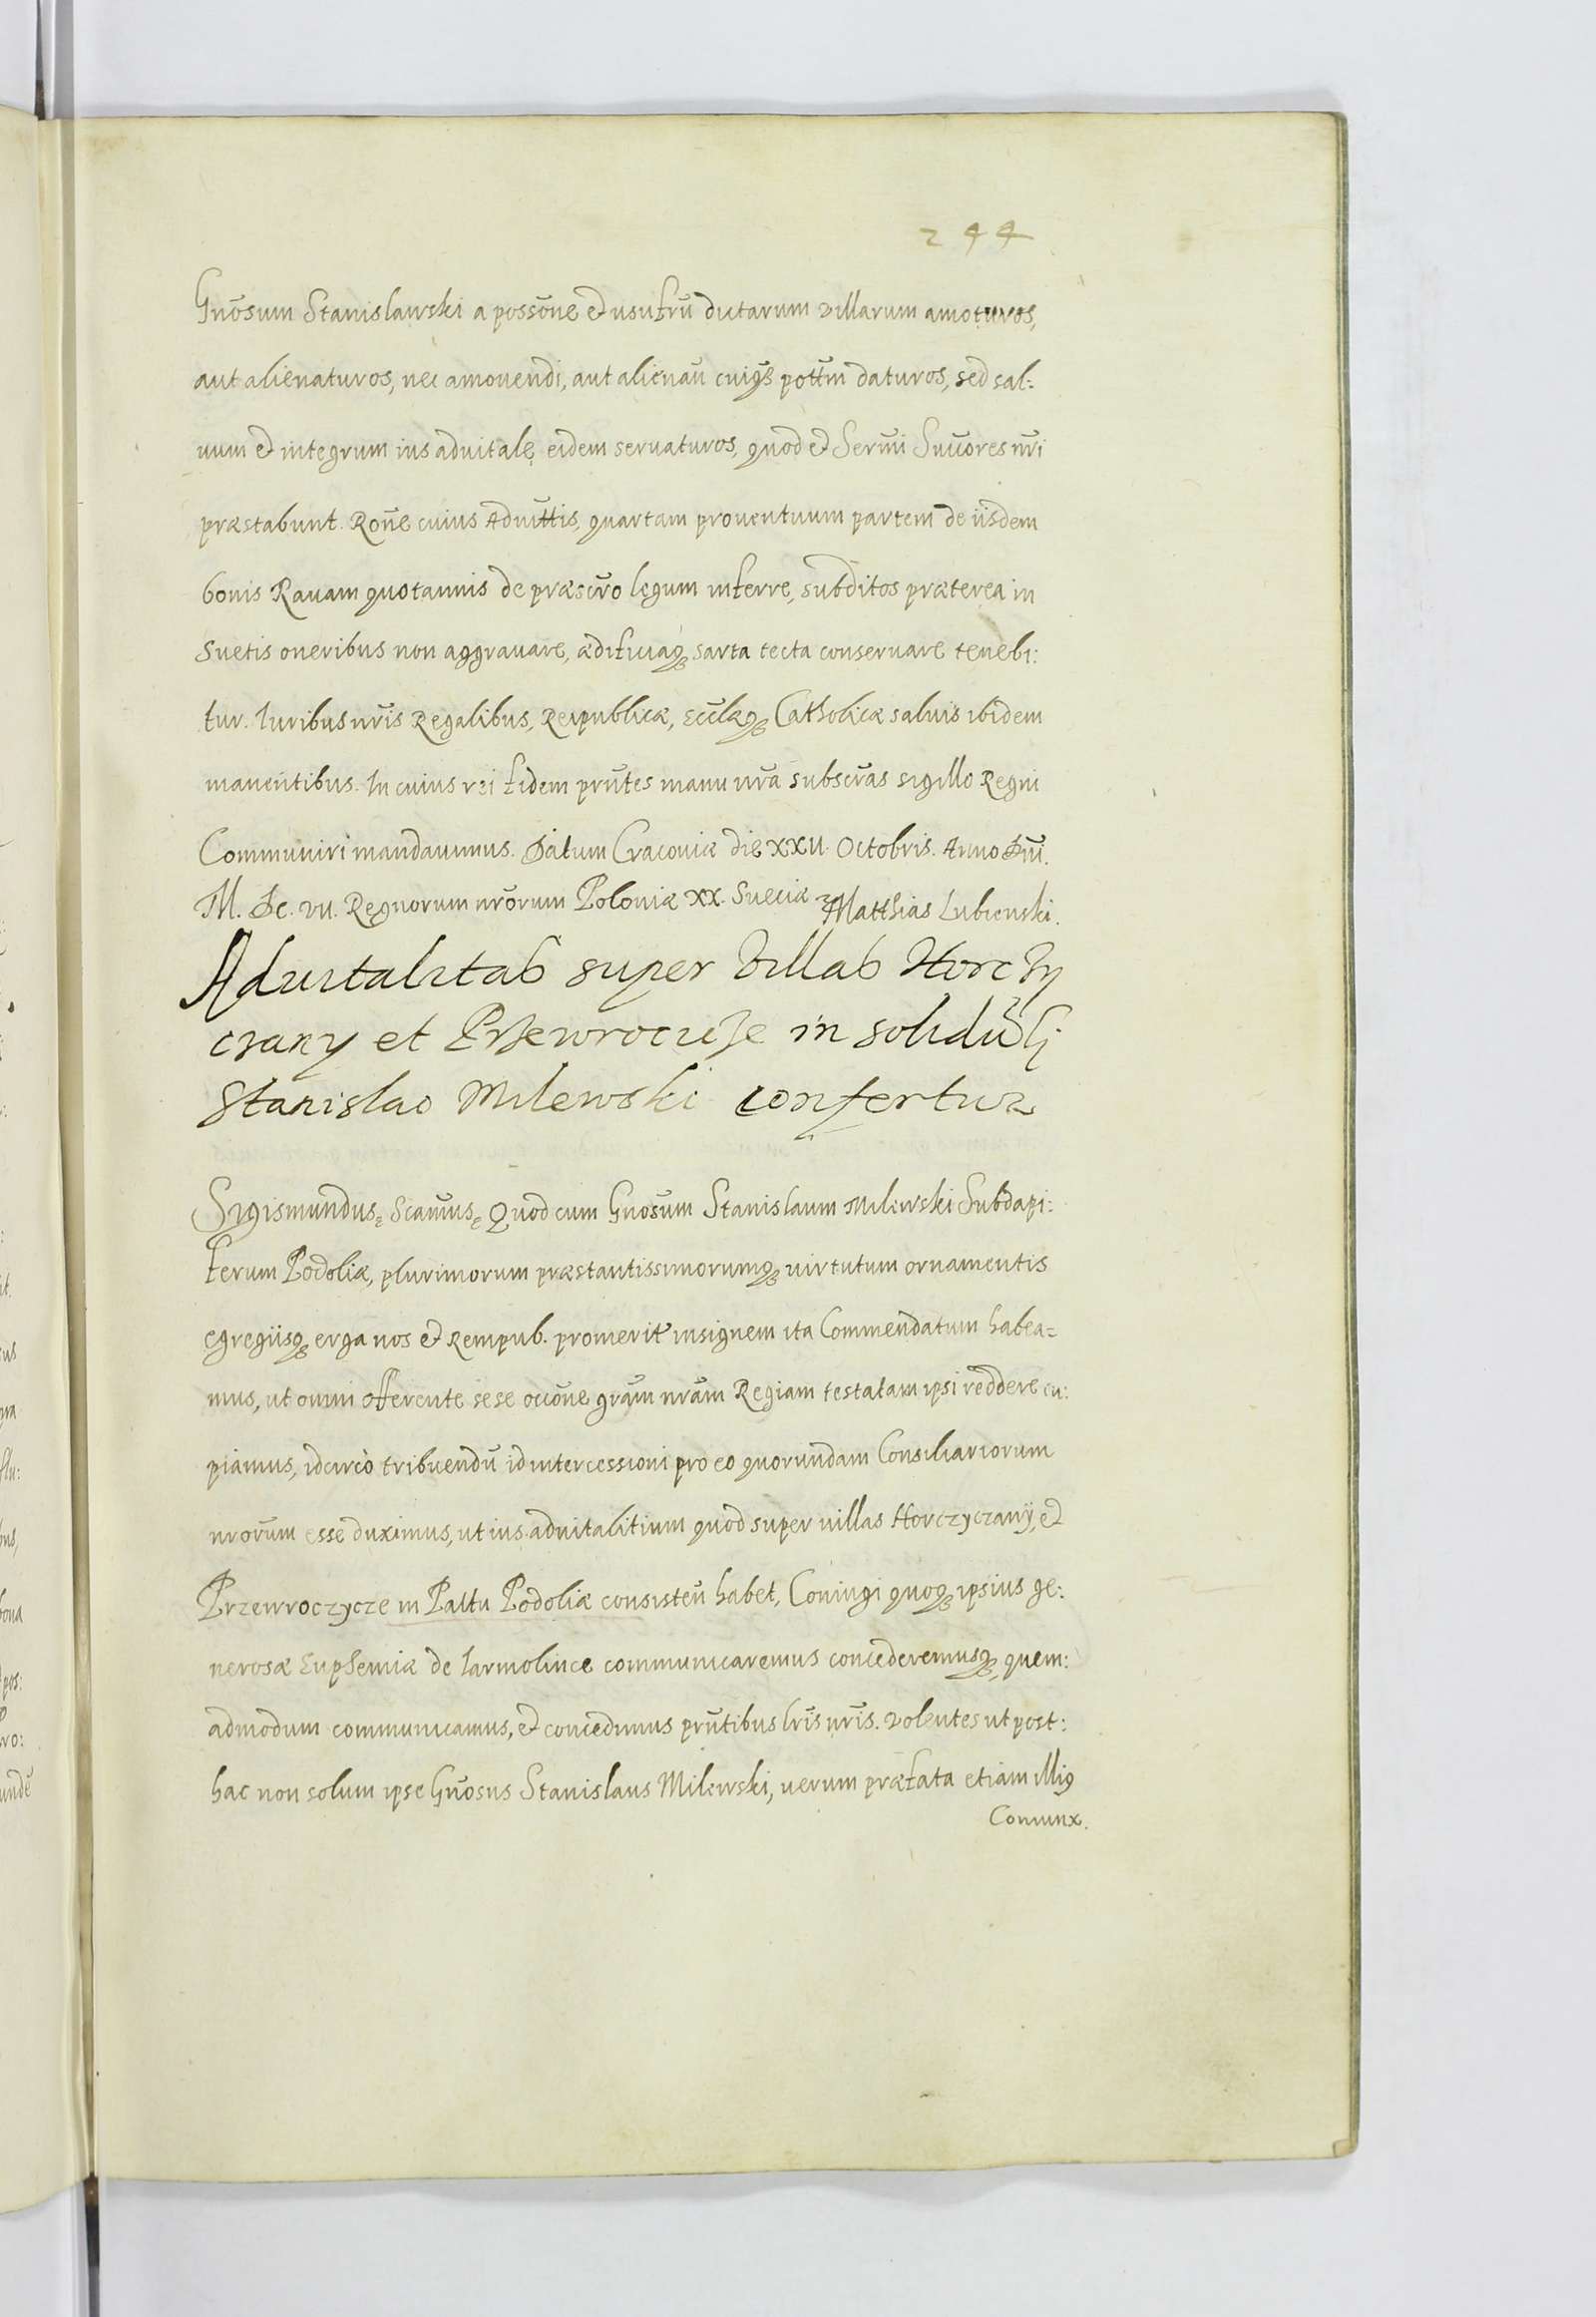 244
Gnōsum Stanislawski a possōne et usufrū dictarum villarum amoturos,
aut alienaturos, nec amovendi, aut alienān cuiqȝ pottm̄ daturos, sed sal:
uum et integrum ius aduitalę eidem seruaturos, quod et Serm̄i Succores nr̄i
præstabunt. Rōne cuius Aduittis, quartam prouentuum partem de iisdem
bonis Rauam quotannis de præscr̄o legum inferre, subditos præterea in
suetis oneribus non aggrauare, ædificiaqȝ sarta tecta conseruare tenebi:
tur. Iuribus nr̄is Regalibus, Reipublicæ, Eccl̄æqȝ Catholicæ saluis ibidem
manentibus. In cuius rei fidem prn̄tes manu nr̄a subscr̄as sigillo Regni
Communiri mandauimus. Datum Cracouiæ die XXII. Octobris. Anno Dn̄i.
M. Dc. VII. Regnorum nrōrum Poloniæ XX. Sueciæ Matthias Lubienski.
Aduitalitas super villas Horczy
czany et Przewroczyze in solidū G
Stanislao Milewski confertur
Sigismundus, Scam̄us, Quod cum Gnōsum Stanislaum Milewski Subdapi:
ferum Podoliæ, plurimorum præstantissimorumqȝ uirtutum ornamentis
egregiisqȝ erga nos et Rempub. promerit' insignem ita Commendatum habea=
mus, ut omni offerente sese occōne grām nrām Regiam testatam ipsi reddere cu:
piamus, idcircò tribuendū id intercessioni pro eo quorundam Consiliariorum
nrorūm esse duximus, ut ius aduitalitium quod super uillas Horczyczany, et
Przewroczycze in Pal̄tu Podoliæ consisteñ habet, Coniugi quoqȝ ipsius ge:
nerosæ Euphemiæ de Iarmolince communicaremus concederemusqȝ, quem:
admodum communicamus, et concedimus prn̄tibus lr̄is nr̄is. Volentes ut post:
hac non solum ipse Gnōsus Stanislaus Milewski, uerum præfata etiam illiꝰ
Coniunx.